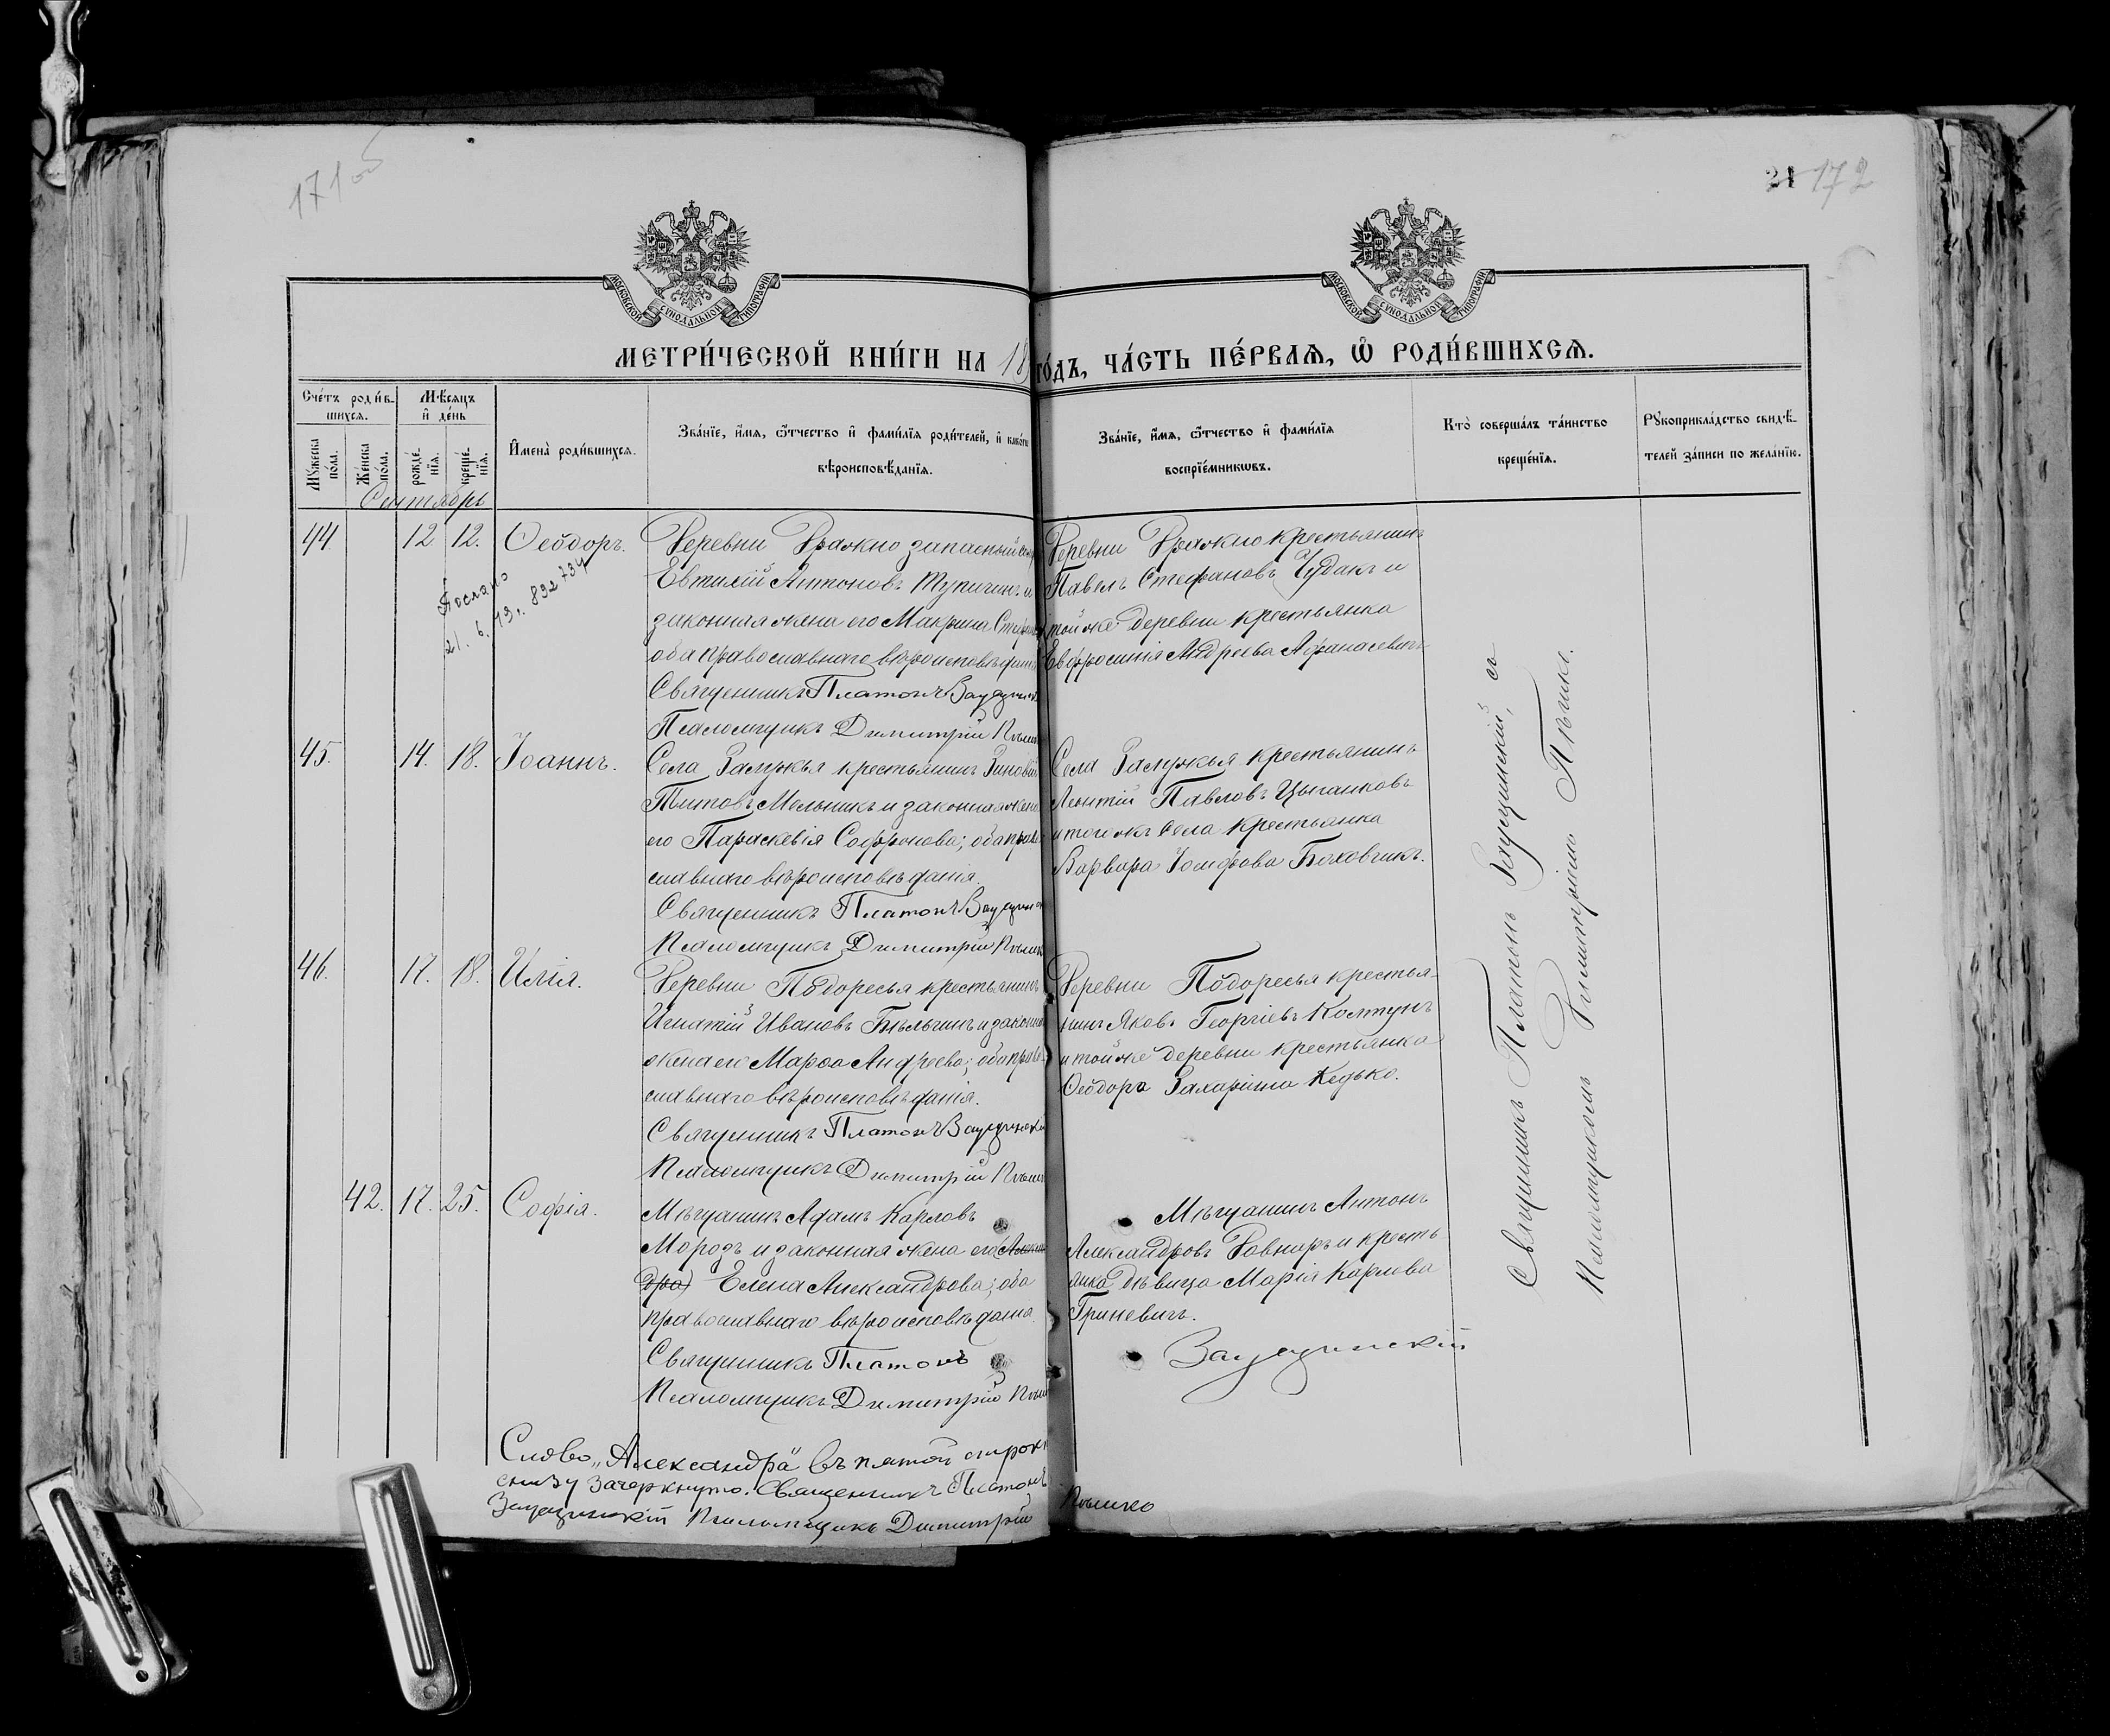 171об
21 172
МОСКОВСКОЙ СУНОДАЛЬНОЙ ТИПОГРАФІИ
МОСКОВСКОЙ СУНОДАЛЬНОЙ ТИПОГРАФІИ
МЕТРИ́ЧЕСКОЙ КНИ́ГИ НА 18
ГО́ДЪ, ЧА́СТЬ ПЕ́РВАѦ, Ѿ РОДИ́ВШИХСѦ.
Сче́тъ роди́в-
шихсѧ.
Мѣ́сѧцъ
и҆ де́нь
Мꙋ́жеска по́ла.
Же́нска по́ла.
рожде́-
нїѧ.
креще́-
нїѧ.
И҆мена̀ роди́вшихсѧ.
Зва́нїе, и҆́мѧ, ѻ҆́тчество и҆ фами́лїѧ роди́телей, и҆ како́гѡ
вѣроисповѣ́данїѧ.
Зва́нїе, и҆́мѧ, ѻ҆́тчество и҆ фами́лїѧ
воспрїе́мникѡвъ.
Кто̀ соверша́лъ та́инство
креще́нїѧ.
Рꙋкоприкла́дство свидѣ́-
телей за́писи по жела́нїю.
Сентябрь
44. 12 12. Ѳеодоръ.
Деревни Дражно запасный
Евтихій Антоновъ Тупичинъ и
законная жена его Макрина
оба православнаго вѣроисповѣданія
Священникъ Платонъ
Псаломщикъ Димитрій
Деревни Дражно крестьянинъ
Павелъ Стефановъ Чудакъ и
той же деревни крестьянка
Евфросинія Андреева Афанасевичъ
Послано
21. 6. 13г. 892 734
45. 14. 18. Іоаннъ.
Села Залужья крестьянинъ Зиновій
Титовъ Мельникъ и законная жена
его Параскевія Софронова; оба право-
славнаго вѣроисповѣданія.
Священникъ Платонъ
Псаломщикъ Димитрій
Села Залужья крестьянинъ
Леонтій Павловъ Цыганковъ
и того жъ села крестьянка
Варвара Іосифова Боховчикъ.
46. 17. 18. Илія.
Деревни Подоресья крестьянинъ
Игнатій Ивановъ и законная
жена его Марѳа Андреева; оба право-
славнаго вѣроисповѣданія.
Священникъ Платонъ
Псаломщикъ Димитрій
Деревни Подоресья крестья-
нинъ Яковъ Георгіевъ Колтунъ
и той же деревни крестьянка
Ѳеодора Захаріина Кедько.
42. 17. 25. Софія.
Мѣщанинъ Адамъ Карловъ
Мародъ и законная жена его Алексан
дра) Елена Александрова; оба
православнаго вѣроисповѣданія.
Священникъ Платонъ
Псаломщикъ Димитрій
Мѣщанинъ Антонъ
Александровъ и кресть-
янка дѣвица Марія Карлова
Гриневичъ.
Священникъ Платонъ съ
Псаломщикомъ Димитріемъ
Слово „Александра" въ пятой строкѣ
снизу зачеркнуто. Священникъ Платонъ
Псаломщикъ Димитрій